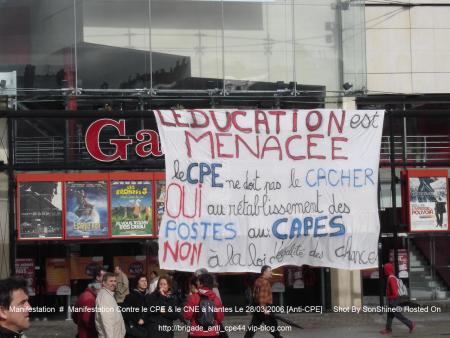 L'EDUCATION est
MENACEE
Ga
le CPE ne doit pas le CACHER
OUI au rétablissement des
POSTES aux CAPES
NON à la loi d'égalité des chances
POUVOIR
Manifestation # Manifestation Contre le CPE & le CNE à Nantes Le 28/03/2006 [Anti-CPE] Shot By SonShine® Hosted On
http://brigade_anti_cpe44.vip-blog.com